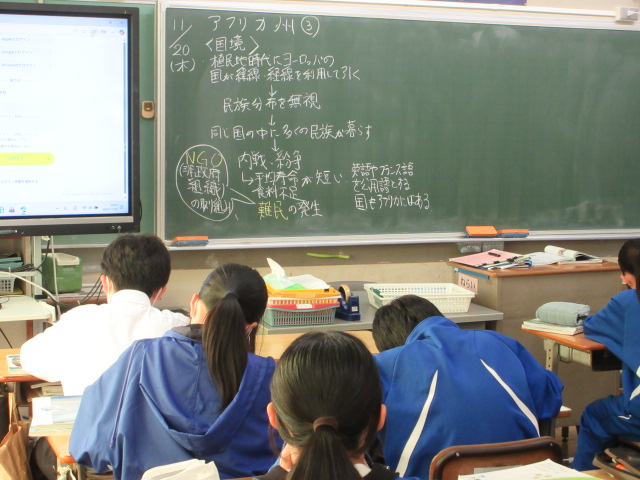 11/20
(木)
アフリカ州③
<国境>
・植民地時代にヨーロッパの
国が緯線・経線を利用して引く
↓
民族分布を無視
↓
同じ国の中に多くの民族が暮らす
↓
内戦・紛争
↳平均寿命が短い
食料不足
難民の発生
NGO
(非政府
組織)
の取り組み
英語やフランス語
を公用語とする
国もアフリカにはある